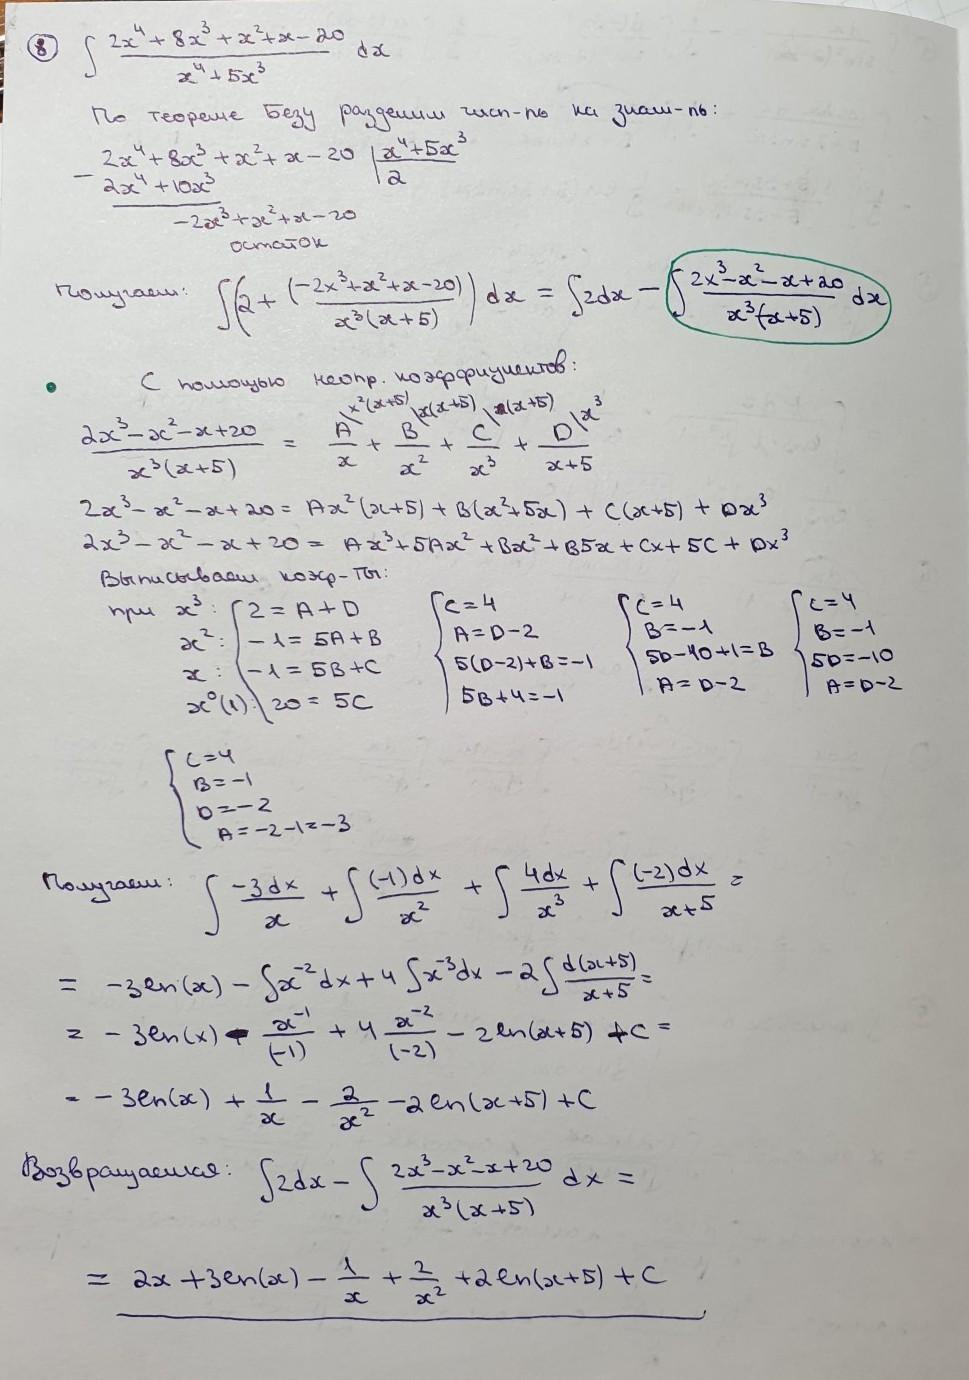 ⑧ ∫ (2x⁴ + 8x³ + x² + x - 20)/(x⁴ + 5x³) dx
По теореме Безу разделим числ-ль на знам-ль:
2x⁴ + 8x³ + x² + x - 20 | x⁴ + 5x³
- 2x⁴ + 10x³ | 2
-2x³ + x² + x - 20
остаток
Получаем: ∫(2 + (-2x³ + x² + x - 20)/(x³(x+5))) dx = ∫2dx - ∫ (2x³ - x² - x + 20)/(x³(x+5)) dx
• С помощью неопр. коэффициентов:
(2x³ - x² - x + 20)/(x³(x+5)) = A\x²(x+5)/x + B\x(x+5)/x² + C\(x+5)/x³ + D\x³/(x+5)
2x³ - x² - x + 20 = Ax²(x+5) + B(x²+5x) + C(x+5) + Dx³
2x³ - x² - x + 20 = Ax³ + 5Ax² + Bx² + B5x + Cx + 5C + Dx³
Выписываем коэф-ты:
при x³: { 2 = A + D { C = 4 { C = 4 { C = 4
x²: -1 = 5A + B A = D - 2 B = -1 B = -1
x: -1 = 5B + C 5(D-2) + B = -1 5D - 10 + 1 = B 5D = -10
x⁰(1): 20 = 5C 5B + 4 = -1 A = D - 2 A = D - 2
{ C = 4
B = -1
D = -2
A = -2 - 1 = -3
Получаем: ∫ -3dx/x + ∫ (-1)dx/x² + ∫ 4dx/x³ + ∫ (-2)dx/(x+5) =
= -3ln(x) - ∫x⁻²dx + 4∫x⁻³dx - 2∫ d(x+5)/(x+5) =
= -3ln(x) - x⁻¹/(-1) + 4 x⁻²/(-2) - 2ln(x+5) + C =
= -3ln(x) + 1/x - 2/x² - 2ln(x+5) + C
Возвращаемся: ∫2dx - ∫ (2x³ - x² - x + 20)/(x³(x+5)) dx =
= 2x + 3ln(x) - 1/x + 2/x² + 2ln(x+5) + C